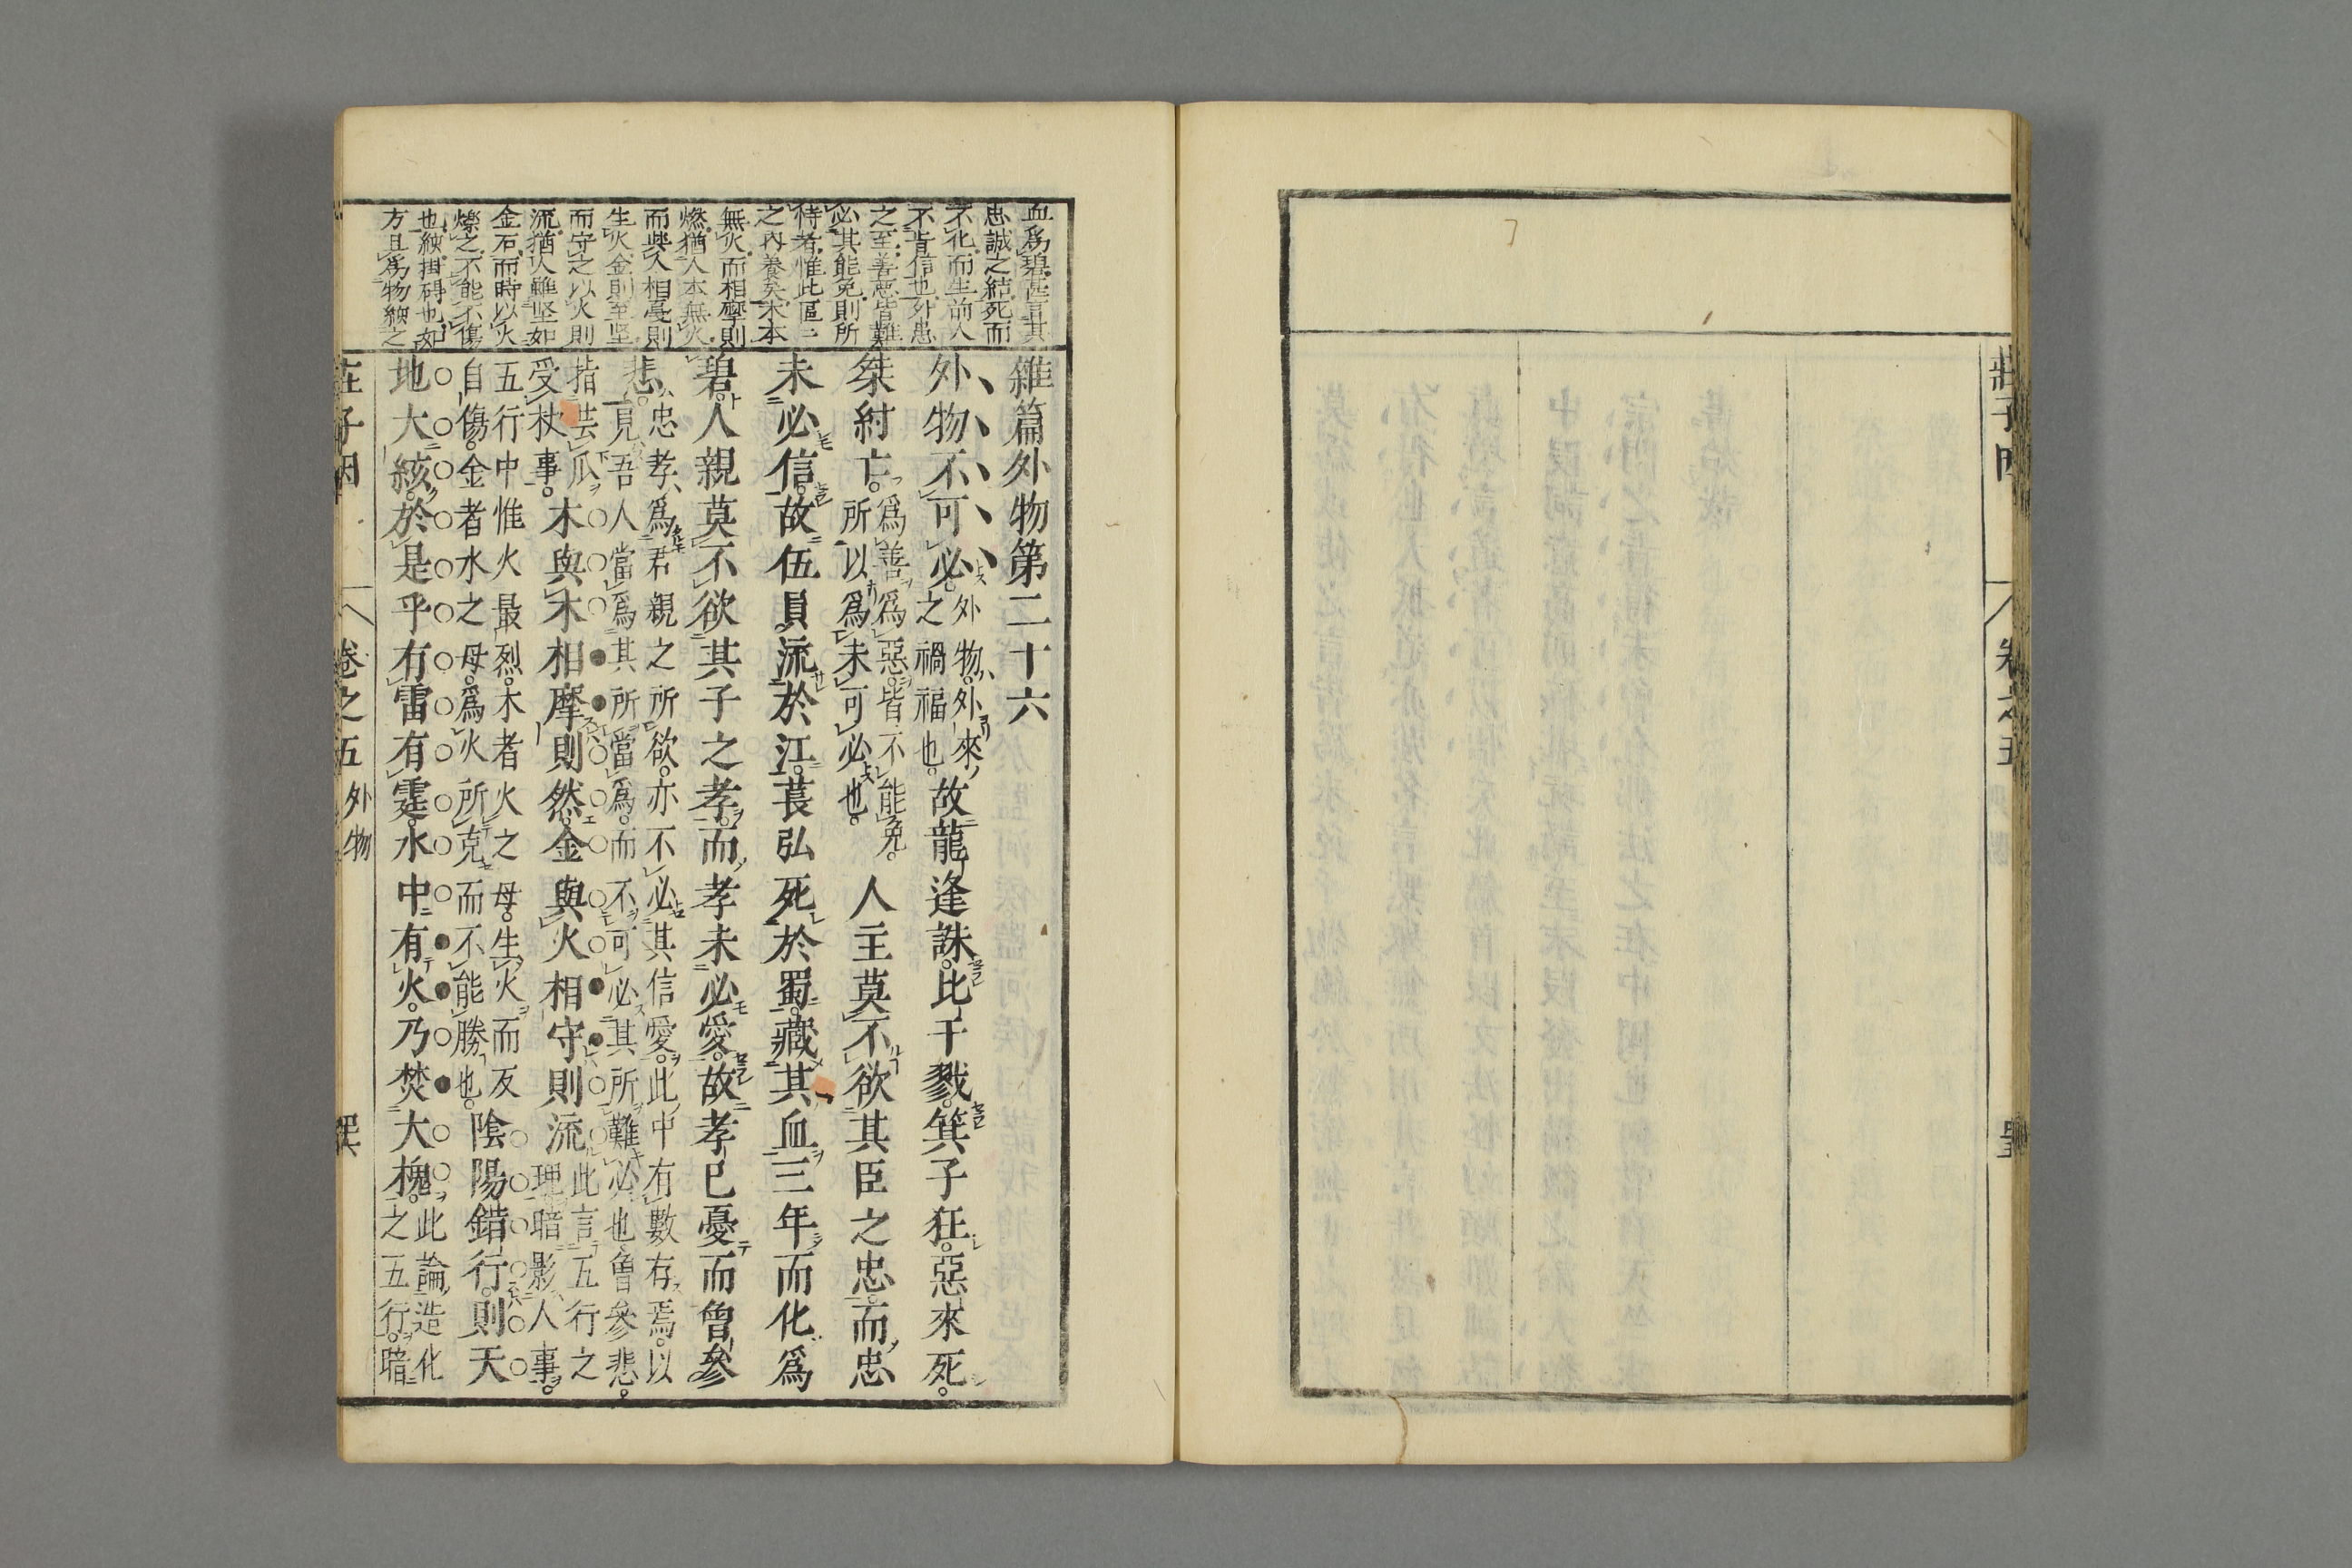 莊子因
卷之五
血爲碧甚言其
忠誠之結死而
不化而生前人
不肯信也外患
之至善惡皆難
必其能免則所
恃者惟此區〻
之內養矣木本
無火而相摩則
燃猶人本無火
而與人相憂則
生火金則至坚
而守之以火則
流猶人雖坚如
金石而時以火
爍之不能不傷
也絯掛碍也如
方且爲物絯之
雜篇外物第二十六
外物不可必。外物。外來之禍福也。故龍逢誅。比干戮。箕子狂。惡來死。
桀紂亡。爲善爲惡。皆不能免。所以爲未可必也。人主莫不欲其臣之忠。而忠
未必信。故伍員流於江。萇弘死於蜀。藏其血三年。而化爲
碧。人親莫不欲其子之孝。而孝未必愛。故孝己憂而曾參
悲。忠孝爲君親之所欲。亦不必其信愛。此中有數存焉。以見吾人當爲其所當爲。而不可必其所難必也。曾參悲。
指芸瓜受杖事。木與木相摩則然。金與火相守則流。此言五行之理。暗影人事。
五行中惟火最烈。木者火之母。生火而反自傷。金者水之母。爲火所克而不能勝也。陰陽錯行。則天
地大絯。於是乎有雷有霆。水中有火。乃焚大槐。此論造化之五行。暗
莊子因
卷之五
外物